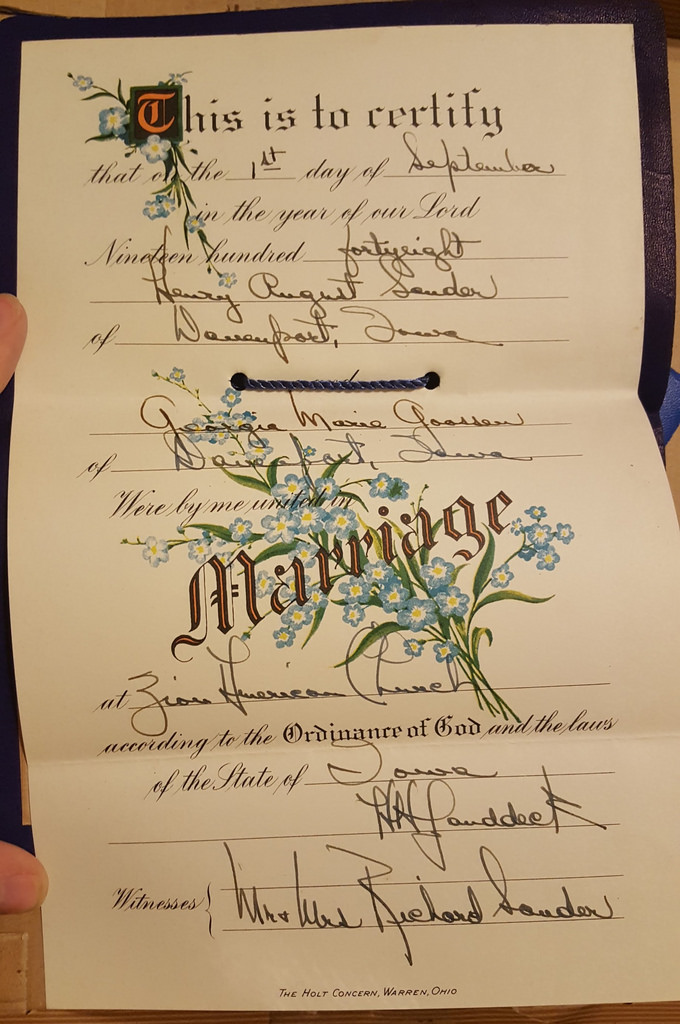 This is to certify
that on the 1st day of September
in the year of our Lord
Nineteen hundred fortyeight
Henry August Sander
of Davenport, Iowa
Georgia Marie Goossen
of Davenport, Iowa
Were by me united in
Marriage
at Zion American Church
according to the Ordinance of God and the laws
of the State of Iowa
Witnesses { Mr & Mrs Richard Sander
THE HOLT CONCERN, WARREN, OHIO